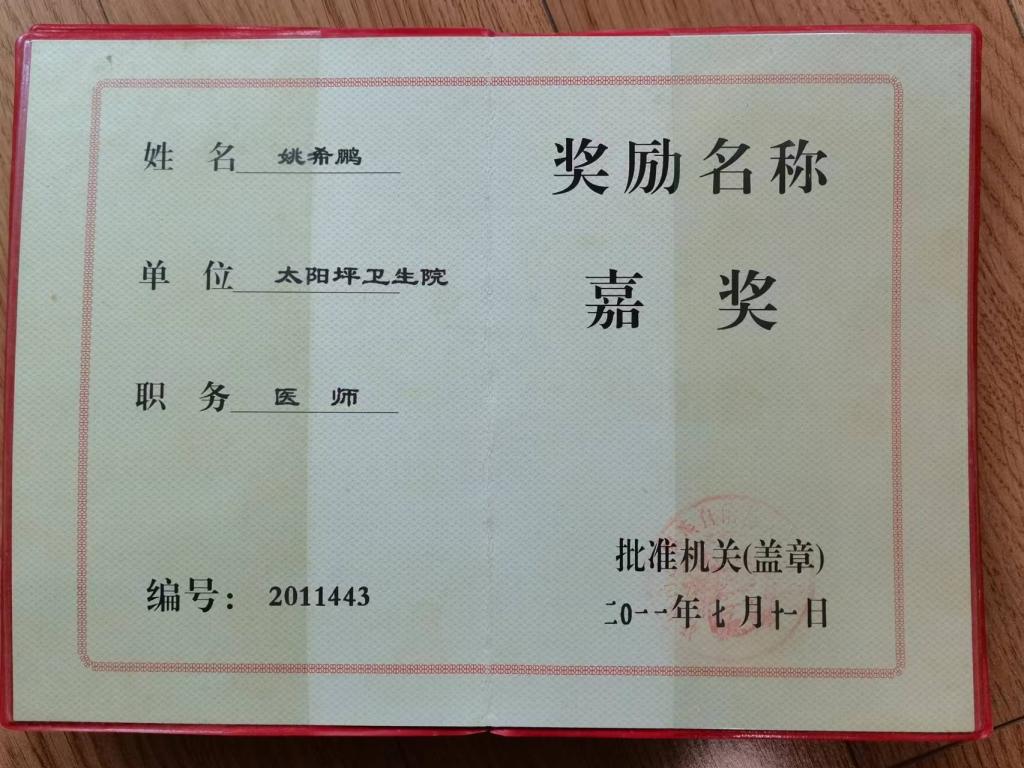 姓 名 姚希鹏
单 位 太阳坪卫生院
职 务 医 师
编号: 2011443
奖励名称
嘉 奖
批准机关(盖章)
二0一一年七月十一日